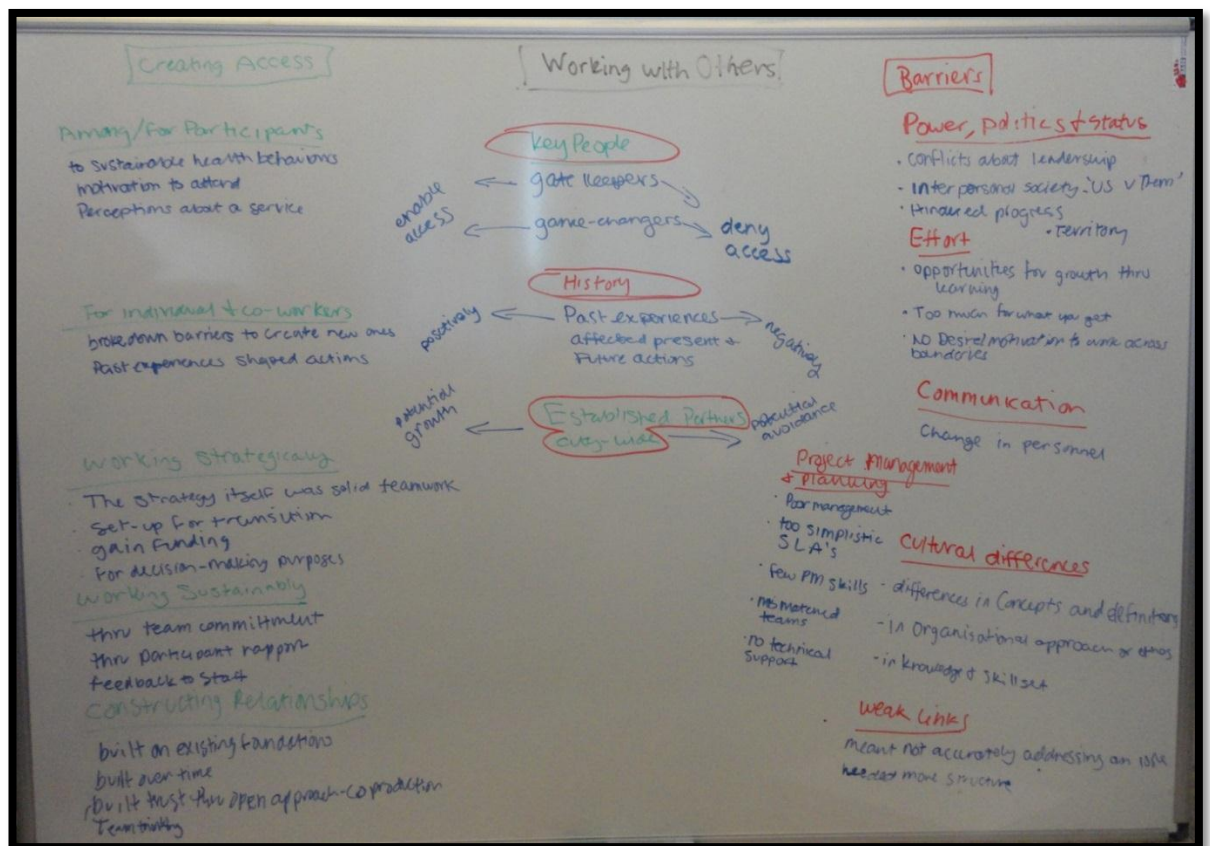 Creating Access
Among/For Participants
to sustainable health behaviors
motivation to attend
Perceptions about a service
For individual + co-workers
broke down barriers to create new ones
Past experiences shaped actions
Working Strategically
· The strategy itself was solid teamwork
· Set-up for transition
· gain funding
· For decision-making purposes
Working Sustainably
thru team committment
thru participant rapport
feedback to staff
Constructing Relationships
built on existing foundations
built over time
built trust thru open approach-co production
Team thinking
Working with Others
Key People
gate keepers
game-changers
enable
access
deny
access
History
Past experiences
affected present +
Future actions
positively
negatively
Established Partners
city-wide
potential
growth
potential
avoidance
Barriers
Power, politics + Status
· Conflicts about leadership
- Interpersonal society-'US V Them'
· Hindered progress
· Territory
Effort
· opportunities for growth thru
learning
· Too much for what you get
· NO Desire/motivation to work across
Communication
Change in personnel
Project Management
+ Planning
Poor management
· too simplistic
SLA's
· few PM skills
· mismatched
teams
· no technical
support
Cultural differences
- differences in Concepts and
- in Organisational approach or ethos
- in knowledge + skillset
Weak Links
meant not accurately addressing an
needed more structure